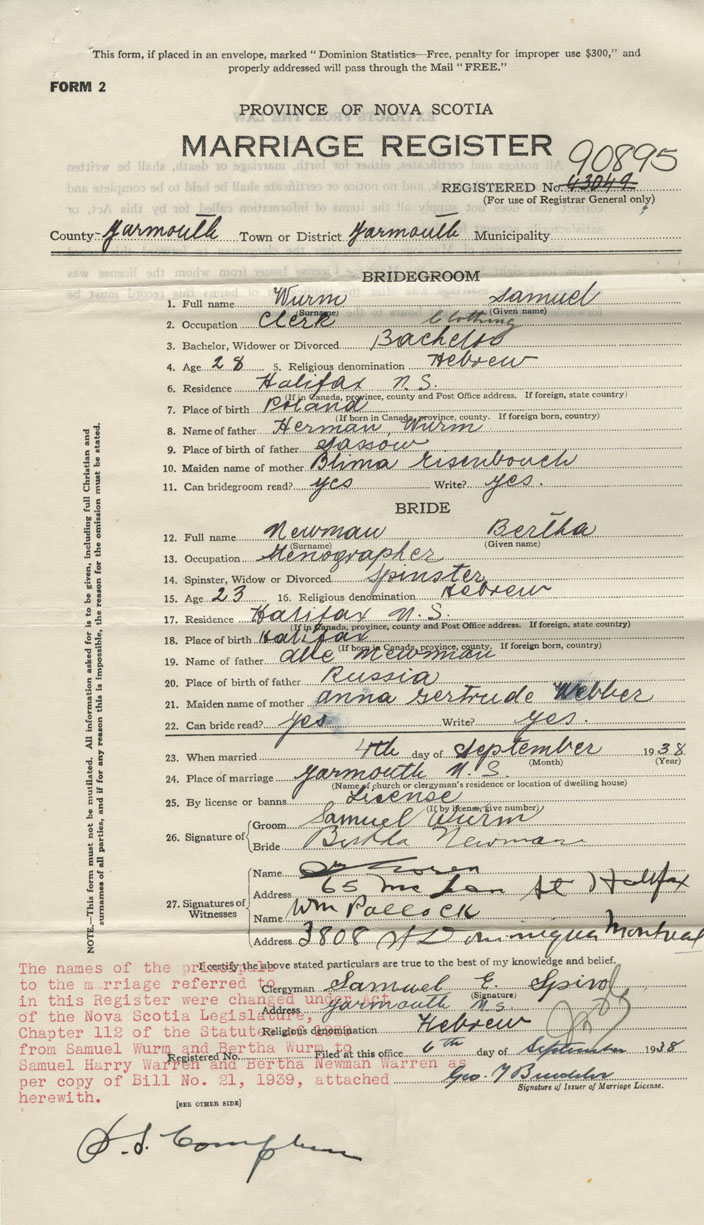 This form, if placed in an envelope, marked "Dominion Statistics—Free, penalty for improper use $300," and
properly addressed will pass through the Mail "FREE."
FORM 2
PROVINCE OF NOVA SCOTIA
MARRIAGE REGISTER
90895
REGISTERED No. 43049
(For use of Registrar General only)
County Yarmouth Town or District Yarmouth Municipality
BRIDEGROOM
1. Full name Wurm Samuel
(Surname) (Given name)
2. Occupation Clerk Clothing
3. Bachelor, Widower or Divorced Bachelor
4. Age 28 5. Religious denomination Hebrew
6. Residence Halifax N.S.
(If in Canada, province, county and Post Office address. If foreign, state country)
7. Place of birth Poland
(If born in Canada, province, county. If foreign born, country)
8. Name of father Herman Wurm
9. Place of birth of father Sassow
10. Maiden name of mother Blima
11. Can bridegroom read? yes Write? yes.
BRIDE
12. Full name Newman Bertha
(Surname) (Given name)
13. Occupation Stenographer
14. Spinster, Widow or Divorced Spinster
15. Age 23 16. Religious denomination Hebrew
17. Residence Halifax N.S.
(If in Canada, province, county and Post Office address. If foreign, state country)
18. Place of birth Halifax
(If born in Canada, province, county. If foreign born, country)
19. Name of father Newman
20. Place of birth of father Russia
21. Maiden name of mother Anna Gertrude Webber
22. Can bride read? yes Write? yes.
23. When married 4th day of September 1938
(Month) (Year)
24. Place of marriage Yarmouth N.S.
(Name of church or clergyman's residence or location of dwelling house)
25. By license or banns License
(If by license, give number)
26. Signature of Groom Samuel Wurm
Bride Bertha Newman
27. Signatures of Witnesses
Name
Address 65 St Halifax
Name Wm Pollock
Address 3808 St Dominique Montreal
NOTE.—This form must not be mutilated. All information asked for is to be given, including full Christian and
surnames of all parties, and if for any reason this is impossible, the reason for the omission must be stated.
I certify the above stated particulars are true to the best of my knowledge and belief.
Clergyman Samuel E. Spiro
(Signature)
Address Yarmouth N.S.
Religious denomination Hebrew
Registered No. Filed at this office 6th day of September 1938
Geo. T
Signature of Issuer of Marriage License.
The names of the principals
to the marriage referred to
in this Register were changed under Act
of the Nova Scotia Legislature,
Chapter 112 of the Statutes
from Samuel Wurm and Bertha Wurm to
Samuel Harry Warren and Bertha Newman Warren as
per copy of Bill No. 21, 1939, attached
herewith.
[SEE OTHER SIDE]